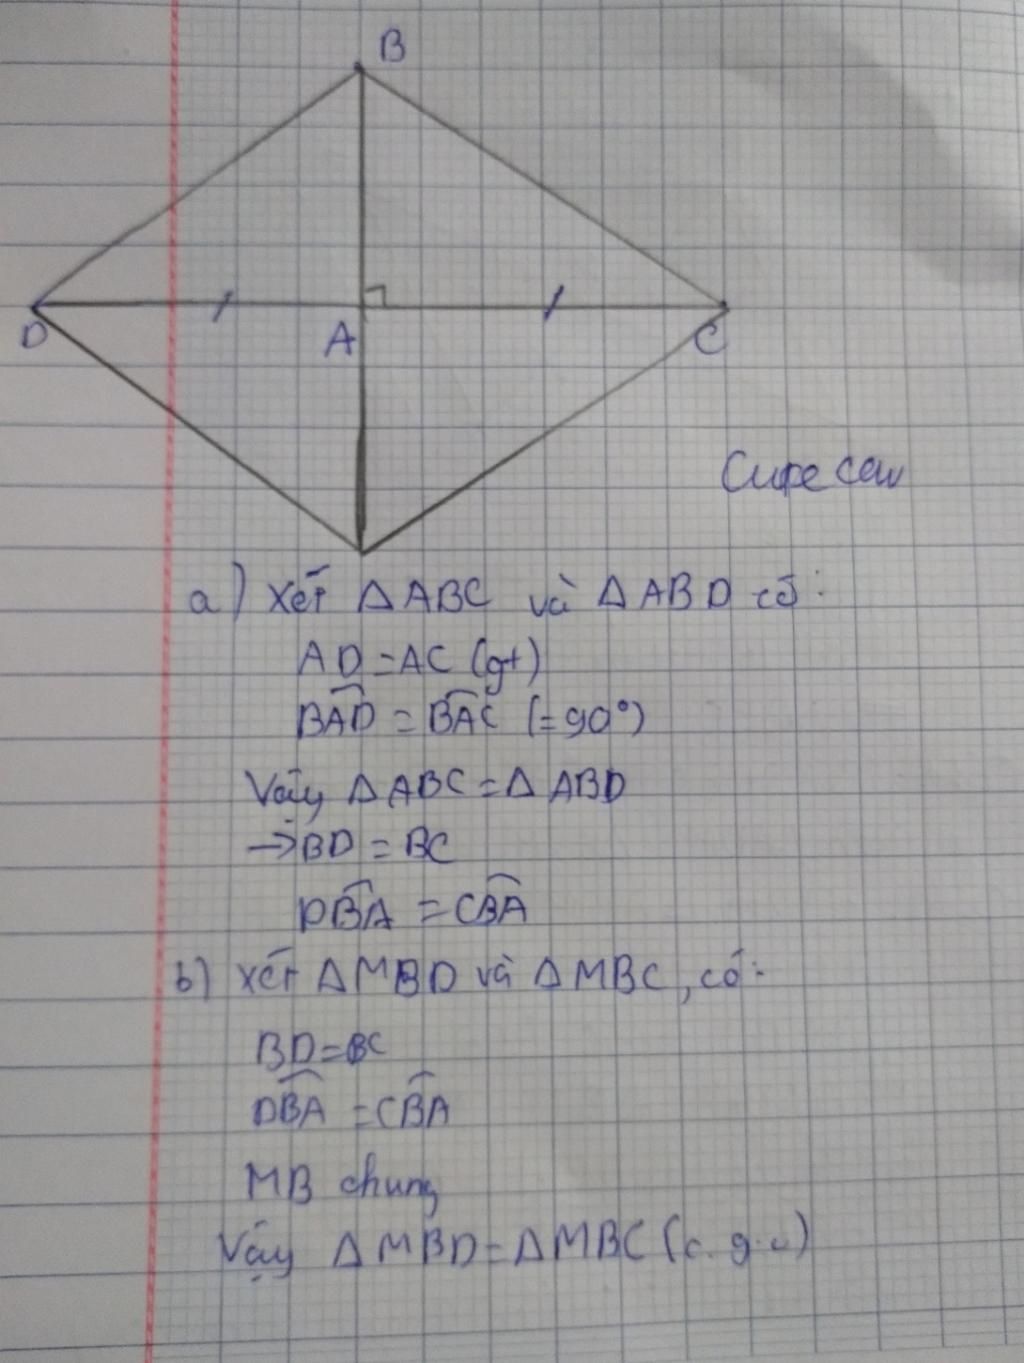 B
D
A
C
Cupe cau
a) Xét ΔABC và ΔABD có:
AD = AC (gt)
BÂD = BÂC (= 90°)
Vậy ΔABC = ΔABD
→ BD = BC
DB̂A = CB̂A
b) Xét ΔMBD và ΔMBC, có:
BD = BC
DB̂A = CB̂A
MB chung
Vậy ΔMBD = ΔMBC (c.g.c)